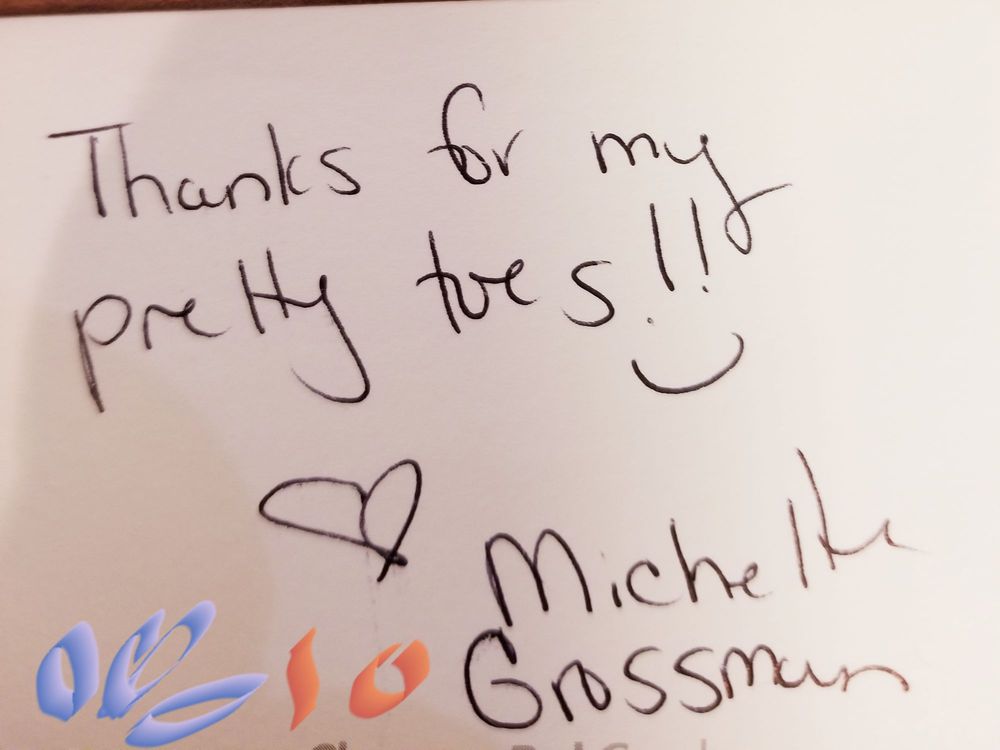 Thanks for my
pretty toes!!
Michelle
Grossman